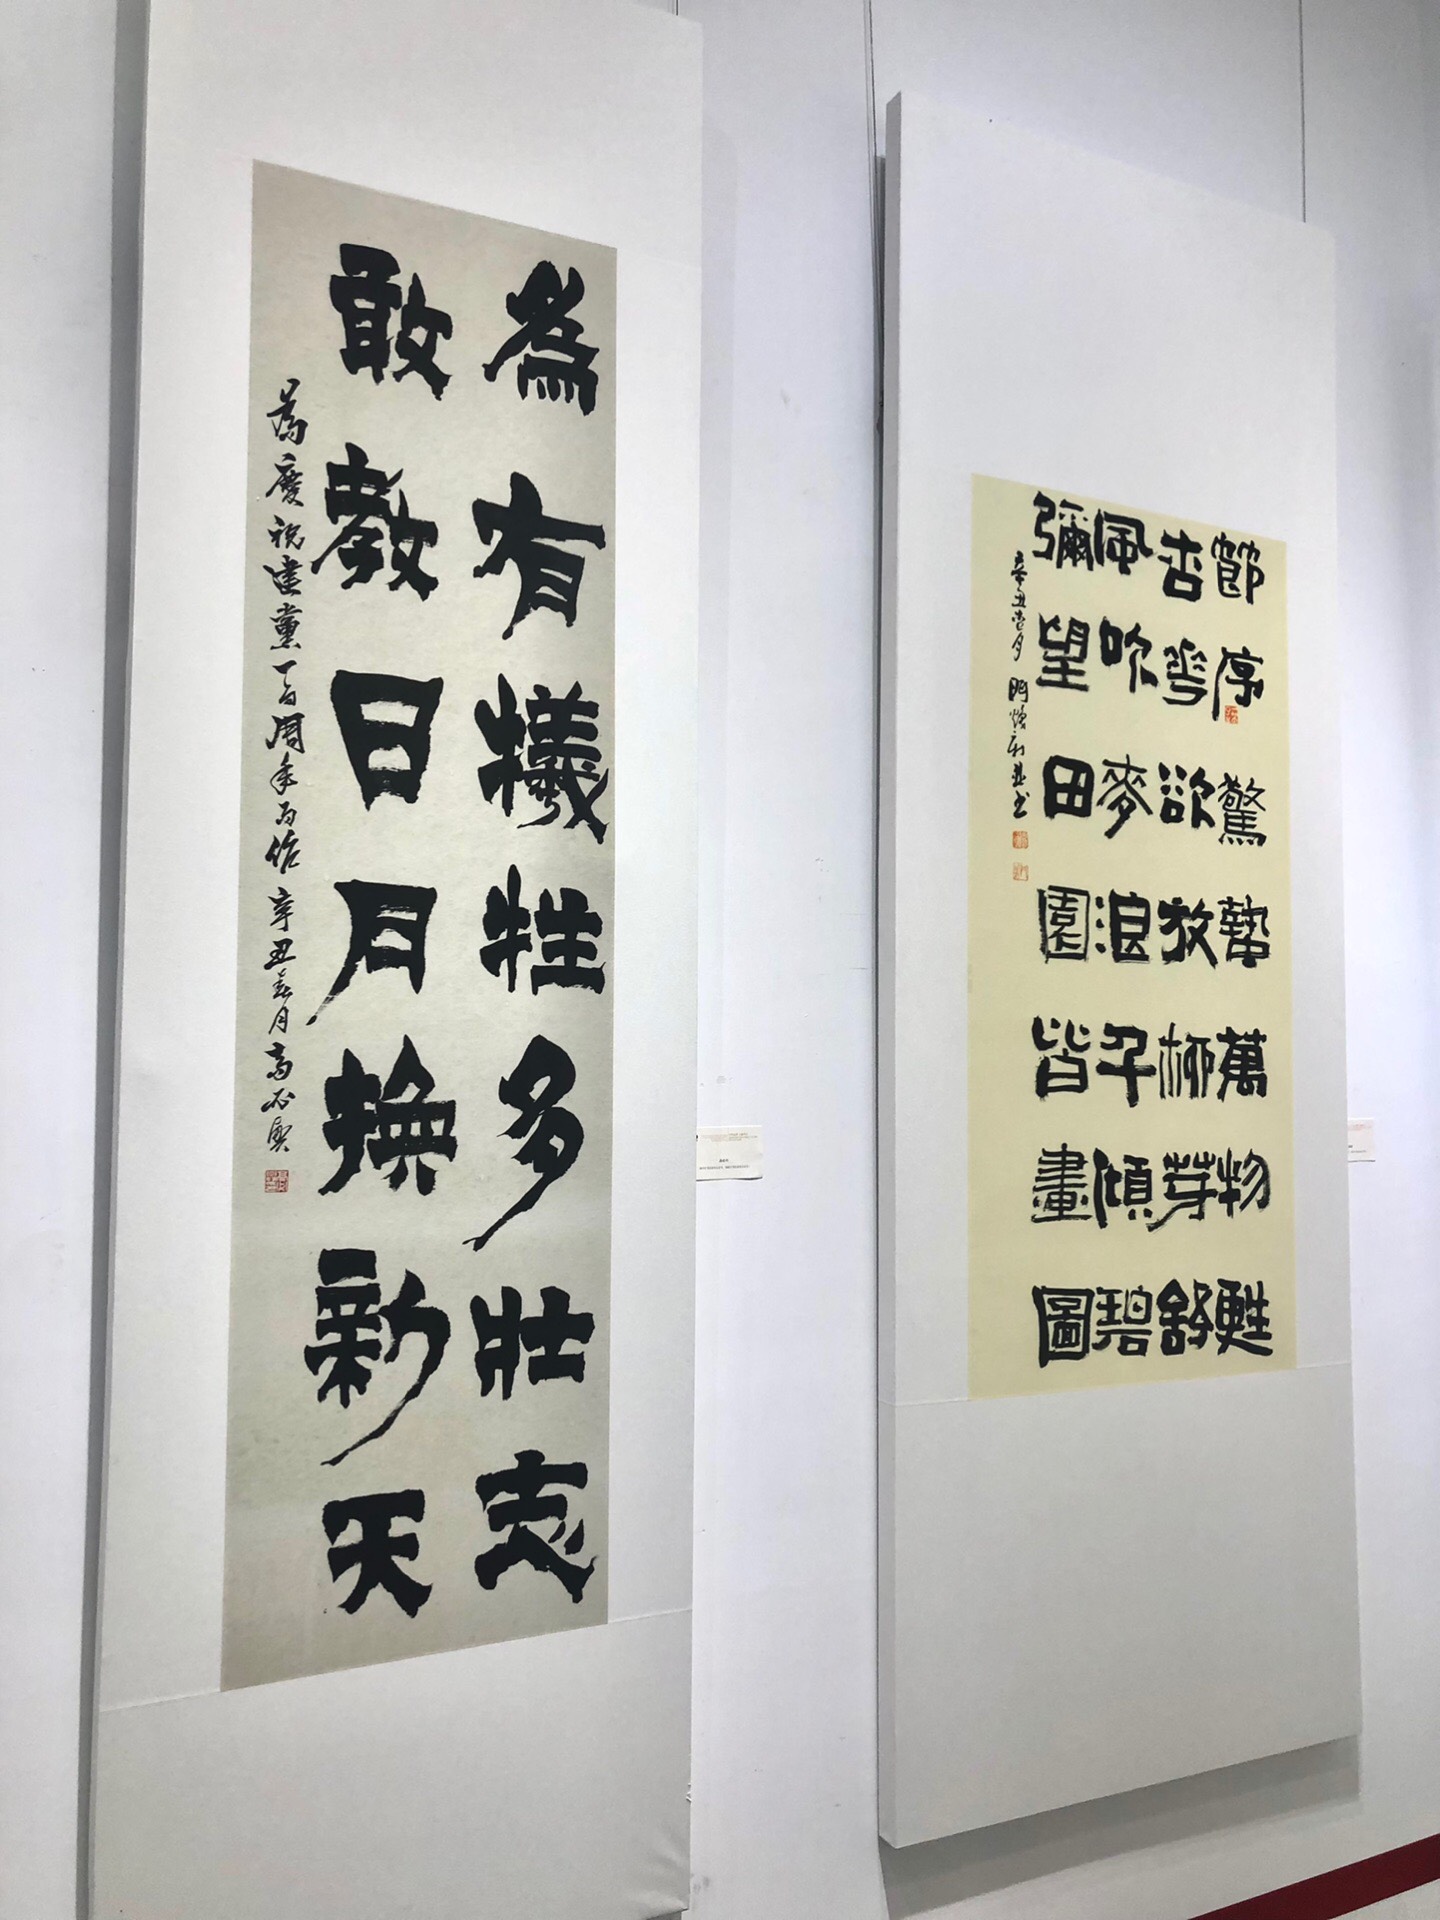 為有犧牲多壯志
敢教日月換新天
為慶祝建黨一百周年而作 辛丑春月
節序驚蟄萬物甦
杏花欲放柳芽舒
風吹麥浪千傾碧
彌望田園皆畫圖
辛丑